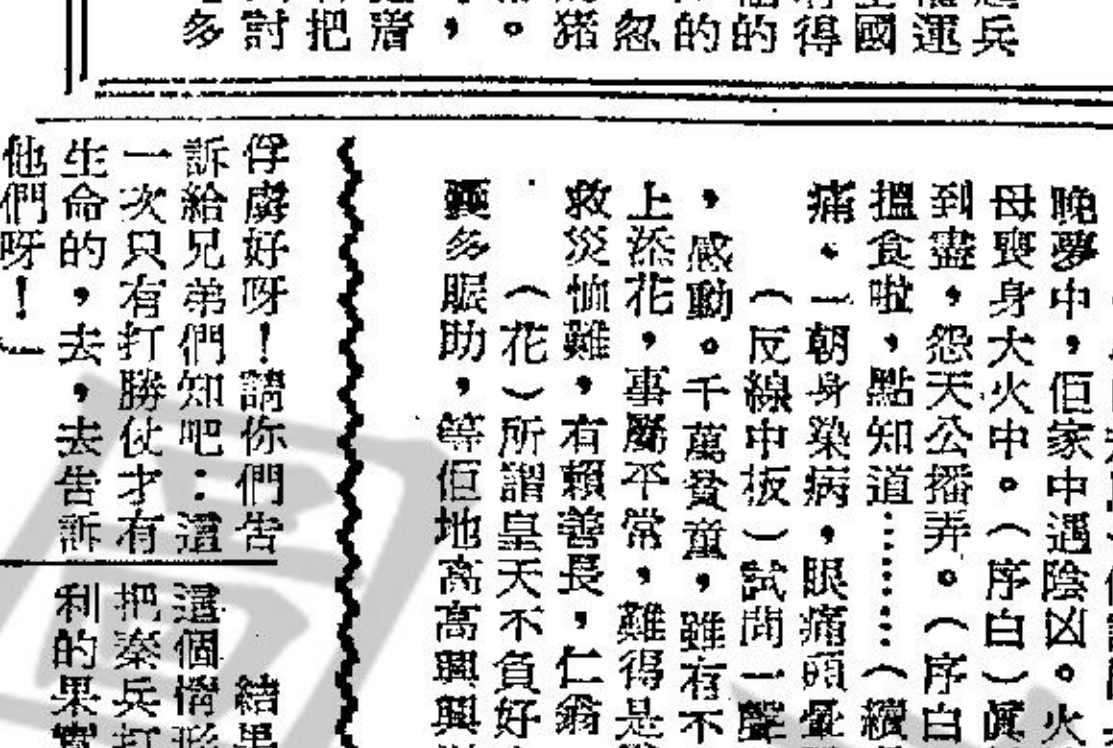 兵
運
國
得
的
的
忽
猪
。
，
着
把
討
多
晚夢中，但家中遇陰凶。火
母喪身大火中。（序白）眞
到盡，怨天公播弄。（序白
搵食啦，點知道……（續
痛。一朝身染病，眼痛頭暈
（反線中板）試問一聲
，感動。千萬貧童，雖有不
上添花，事屬平常，難得是
救災恤難，有賴善長，仁翁
（花）所謂皇天不負好
要多賑助，等佢地高高興興
俘虜好呀！請你們告
訴給兄弟們知吧：這
一次只有打勝仗才有
生命的，去，去告訴
他們呀！」
結果
這個情形
把秦兵打
利的果實